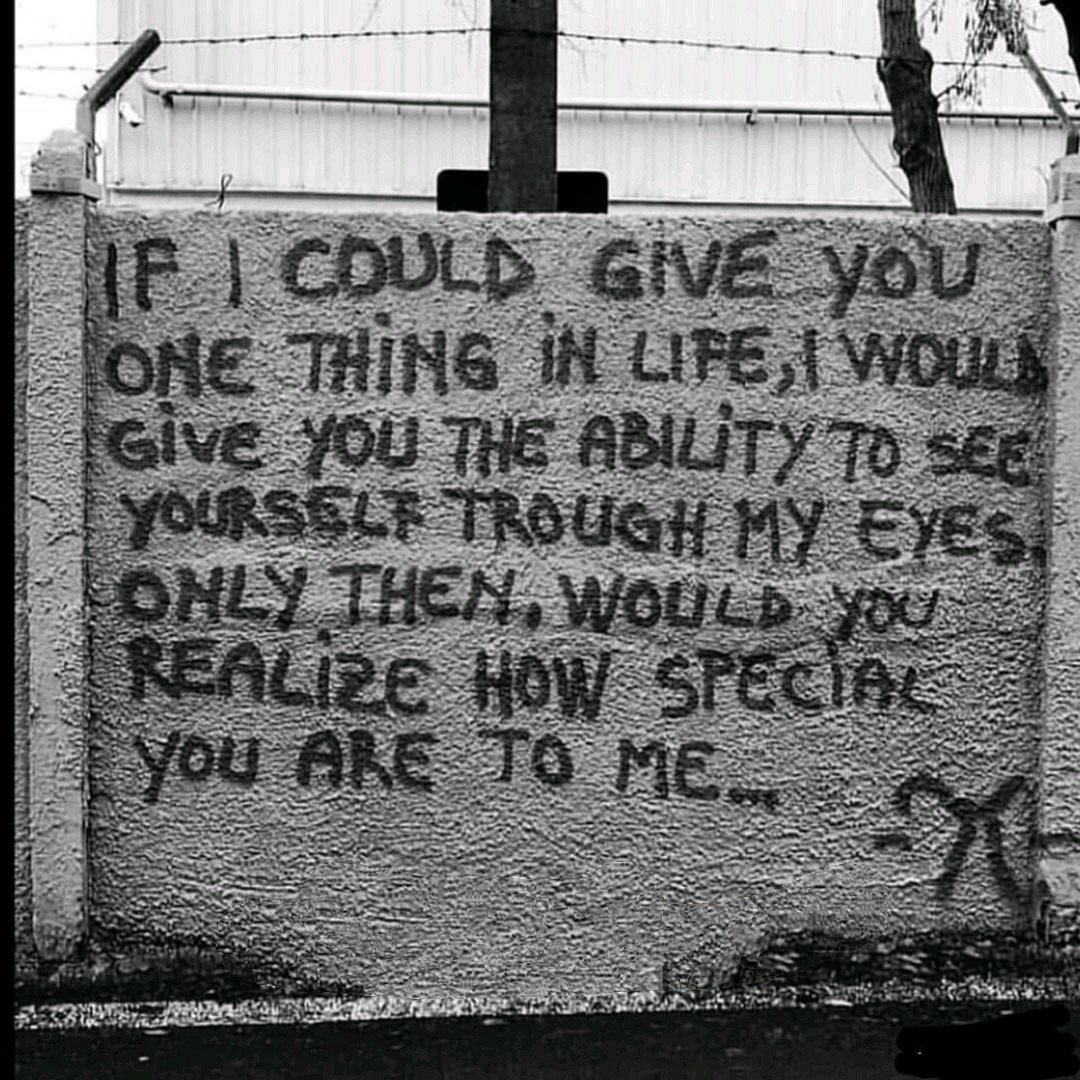 IF I COULD GIVE YOU
ONE THING IN LIFE, I WOULD
GIVE YOU THE ABILITY TO SEE
YOURSELF TROUGH MY EYES.
ONLY THEN, WOULD YOU
REALIZE HOW SPECIAL
YOU ARE TO ME...